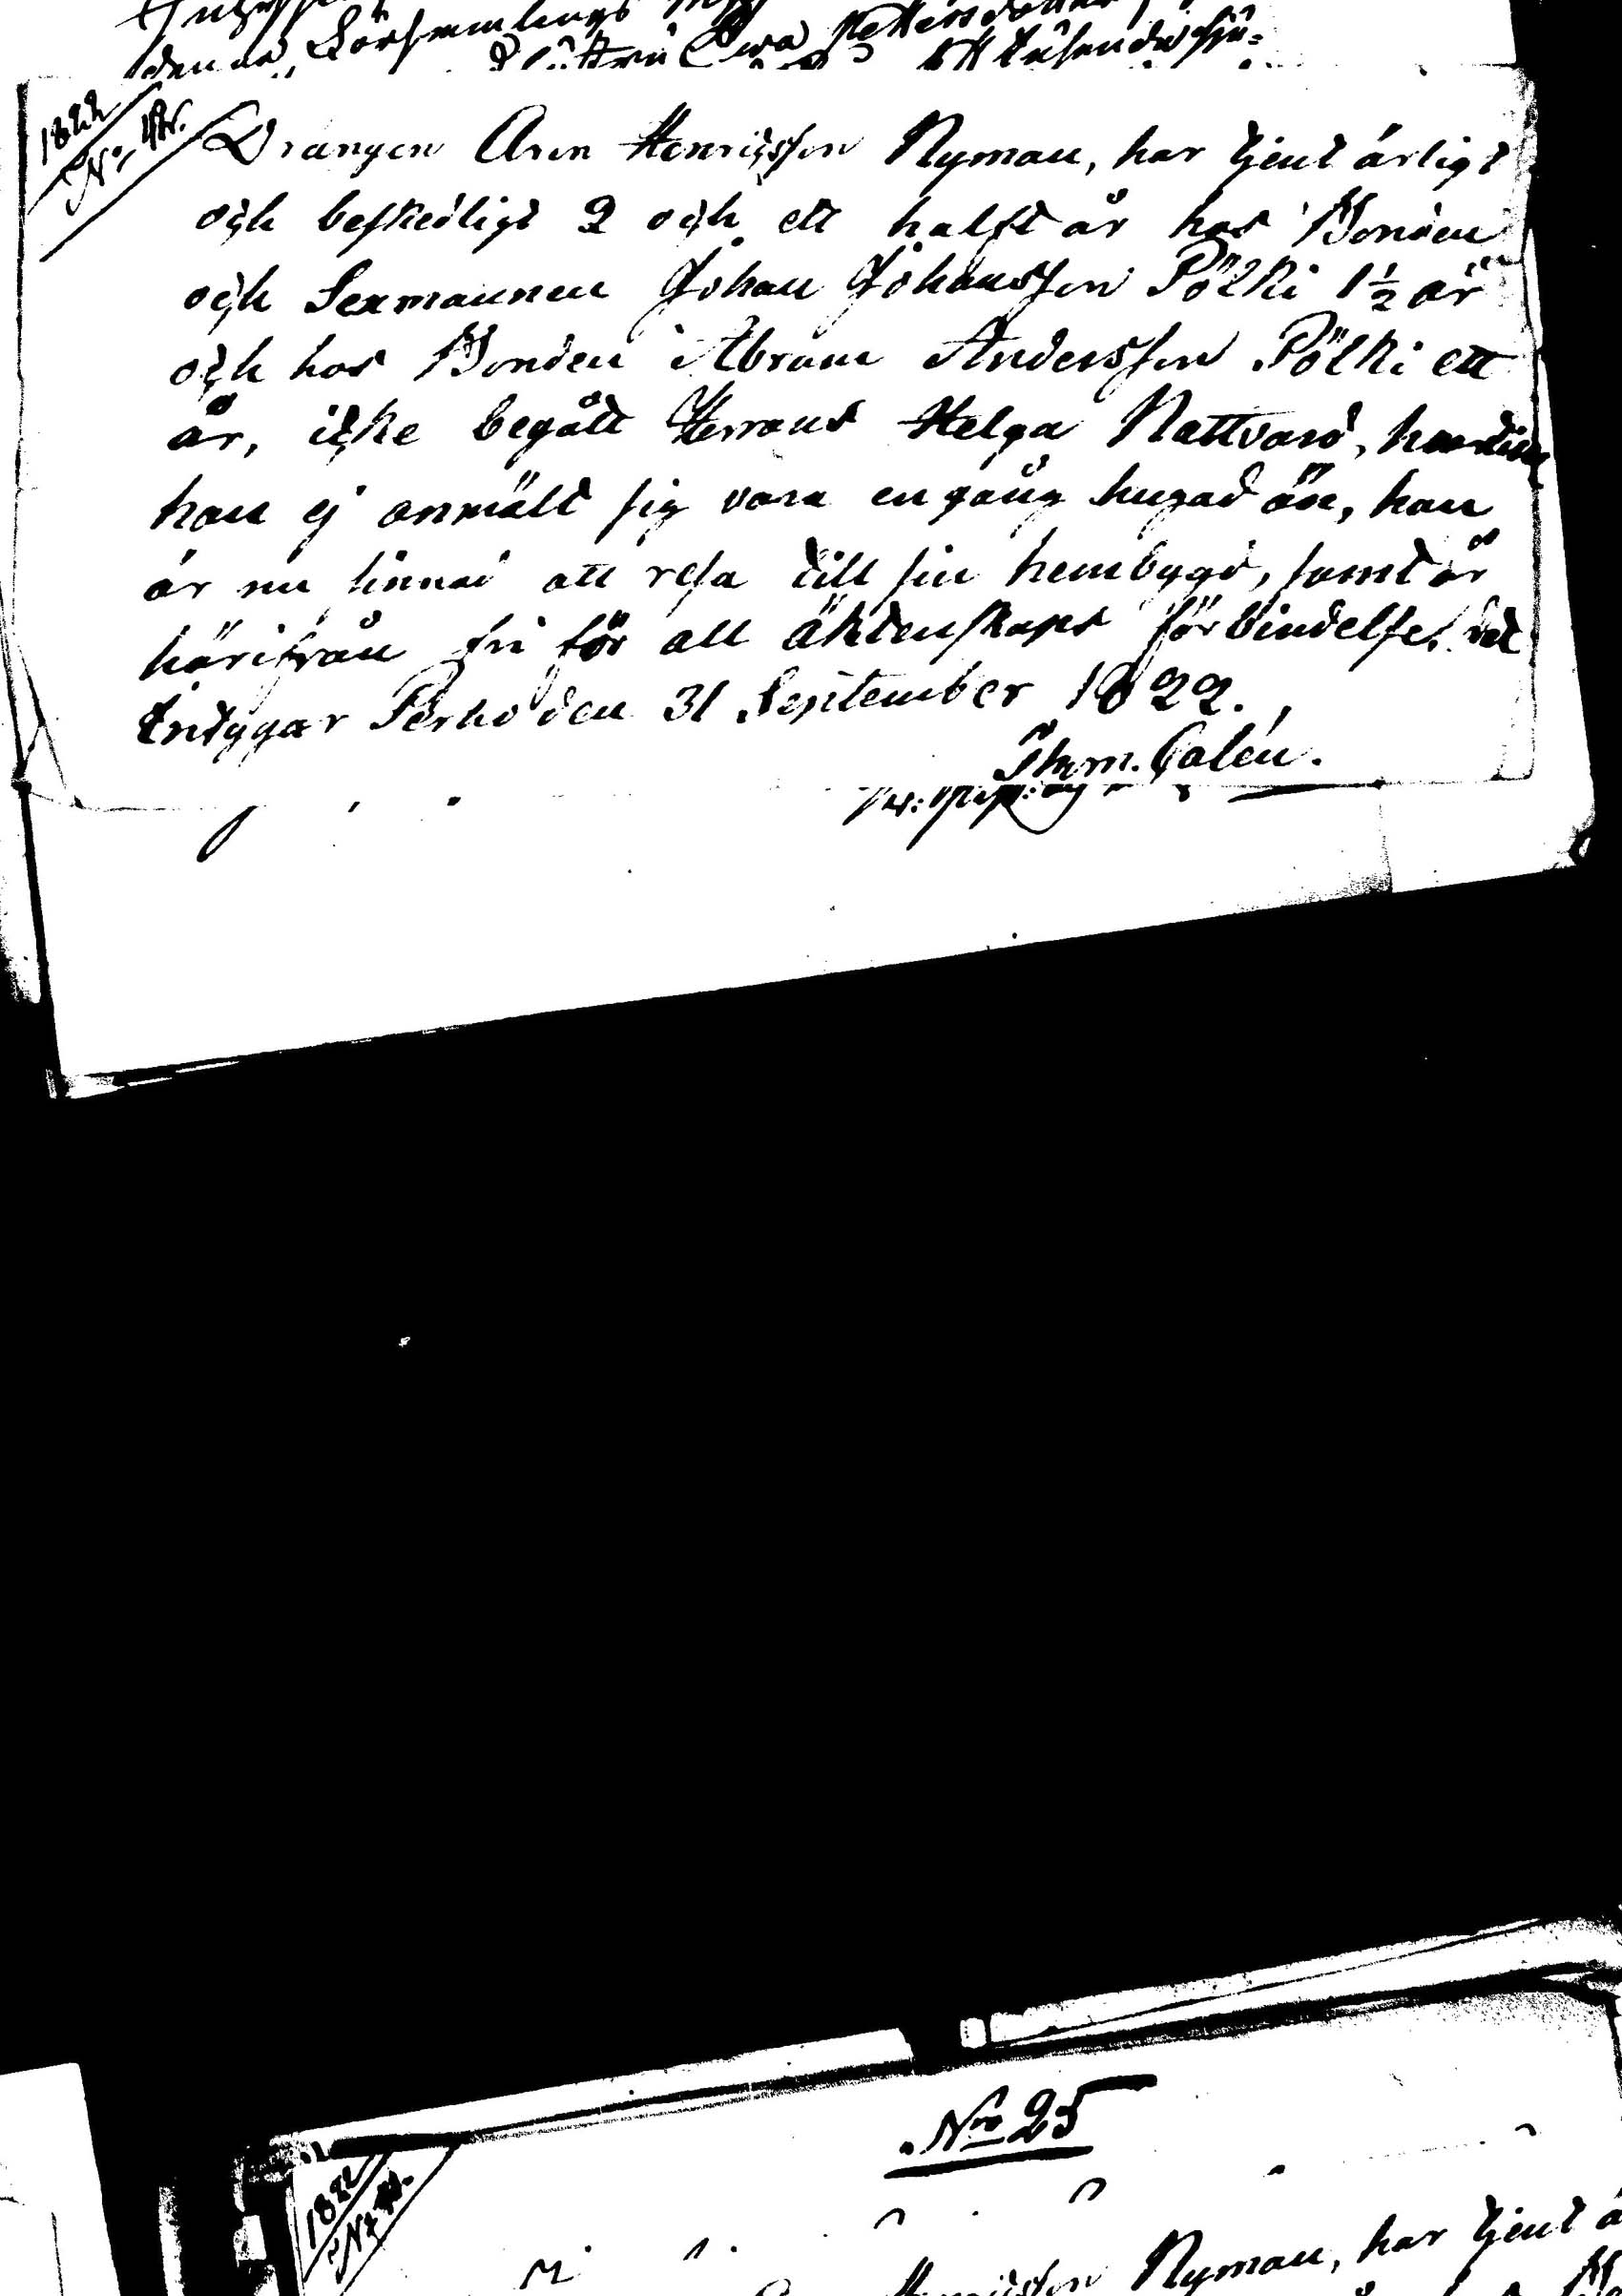 denna Församlings
Ewa Pettersdotter
1822
No,
Drängen Aron Henricsson Nyman, har tjent ärligt
och beskedligt 2 och ett halft år hos Bonden
och Sexmannen Johan Johansson Pölki 1½ år
och hos Bonden Abram Andersson Pölki ett
år, icke begått Herrans Helga Nattvard, hwartill
han ej anmält sig vara en gång hugad än, han
är nu sinnad att resa till sin hembygd, samt är
härifrån fri för all äktenskaps förbindelse, det
intygar Perho den 31 September 1822.
Thom. Calén.
No 25
1822
Nyman, har tjent